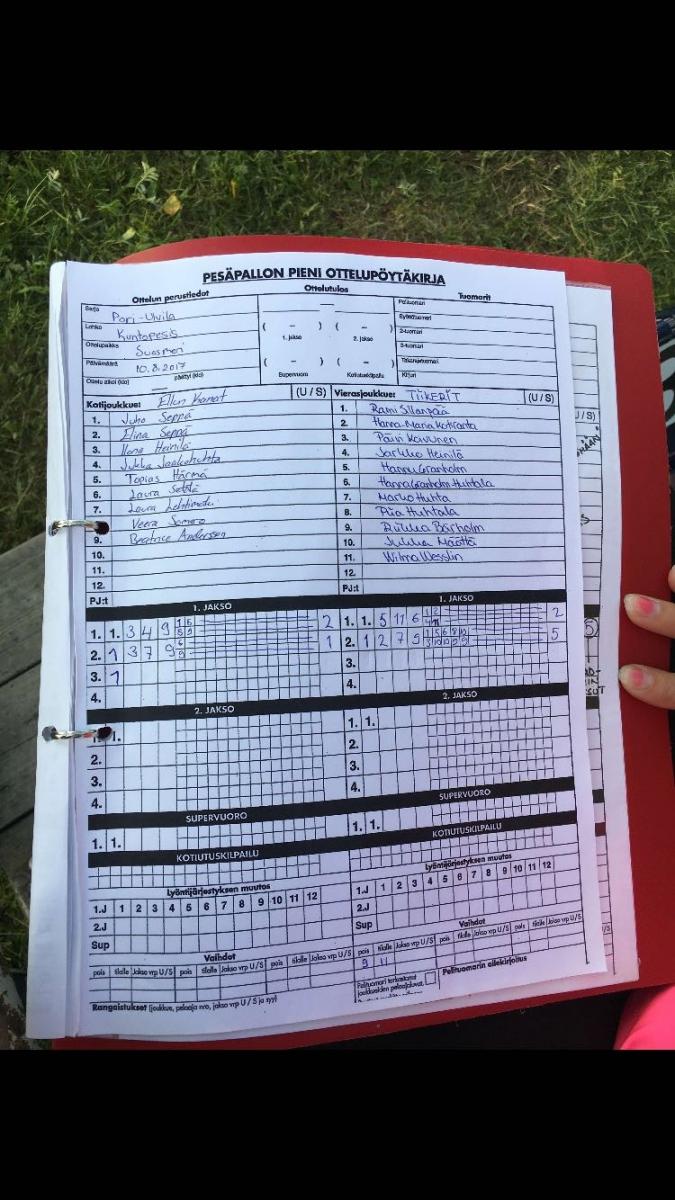 PESÄPALLON PIENI OTTELUPÖYTÄKIRJA
Ottelun perustiedot Ottelutulos Tuomarit
Sarja Pori-Ulvila
Lohko Kuntopesis
Ottelupaikka Suosmeri
Päivämäärä 10.8.2017
Ottelu alkoi (klo) päättyi (klo)
( – ) ( – )
1. jakso 2. jakso
( – ) ( – )
Supervuoro Kotiutuskilpailu
Pelituomari
Syöttötuomari
2-tuomari
3-tuomari
Takarajatuomari
Kirjuri
Kotijoukkue: Ellun Kanat (U / S)
1. Juho Seppä
2. Elina Seppä
3. Ilona Heinilä
4. Jukka Jaakohuhta
5. Topias Härmä
6. Laura Setälä
7. Laura Lehtimäki
Veera Somero
9. Beatrice Andersson
10.
11.
12.
PJ:t
Vierasjoukkue: TIIKERIT (U / S)
1. Rami Sillanpää
2. Hanna-Maria Kotiranta
3. Päivi Kavunen
4. Jarkko Heinilä
5. Hannu Granholm
6. Hanna Granholm-Huhtala
7. Marko Huhta
8. Piia Huhtala
9. Riikka Barholm
10. Jukka Määttä
11. Wilma Wesslin
12.
PJ:t
1. JAKSO 1. JAKSO
1. 1. 3 4 9 2
2. 1 3 7 9 1
3. 1
4.
1. 1. 5 11 6 2
2. 1 2 7 5 5
3.
4.
2. JAKSO 2. JAKSO
1.
2.
3.
4.
1. 1.
2.
3.
4.
SUPERVUORO SUPERVUORO
1. 1. 1. 1.
KOTIUTUSKILPAILU KOTIUTUSKILPAILU
Lyöntijärjestyksen muutos Lyöntijärjestyksen muutos
1.J 1 2 3 4 5 6 7 8 9 10 11 12
2.J
Sup
1.J 1 2 3 4 5 6 7 8 9 10 11 12
2.J
Sup
Vaihdot Vaihdot
pois tilalle Jakso vrp U/S pois tilalle Jakso vrp U/S pois tilalle Jakso vrp U/S
pois tilalle Jakso vrp U/S pois tilalle Jakso vrp U/S pois tilalle Jakso vrp U/S
9 11
Rangaistukset (joukkue, pelaaja n:o, jakso vrp U / S ja syy)
Pelituomari tarkastanut
joukkueiden pelaajaluvat.
Pelituomarin allekirjoitus